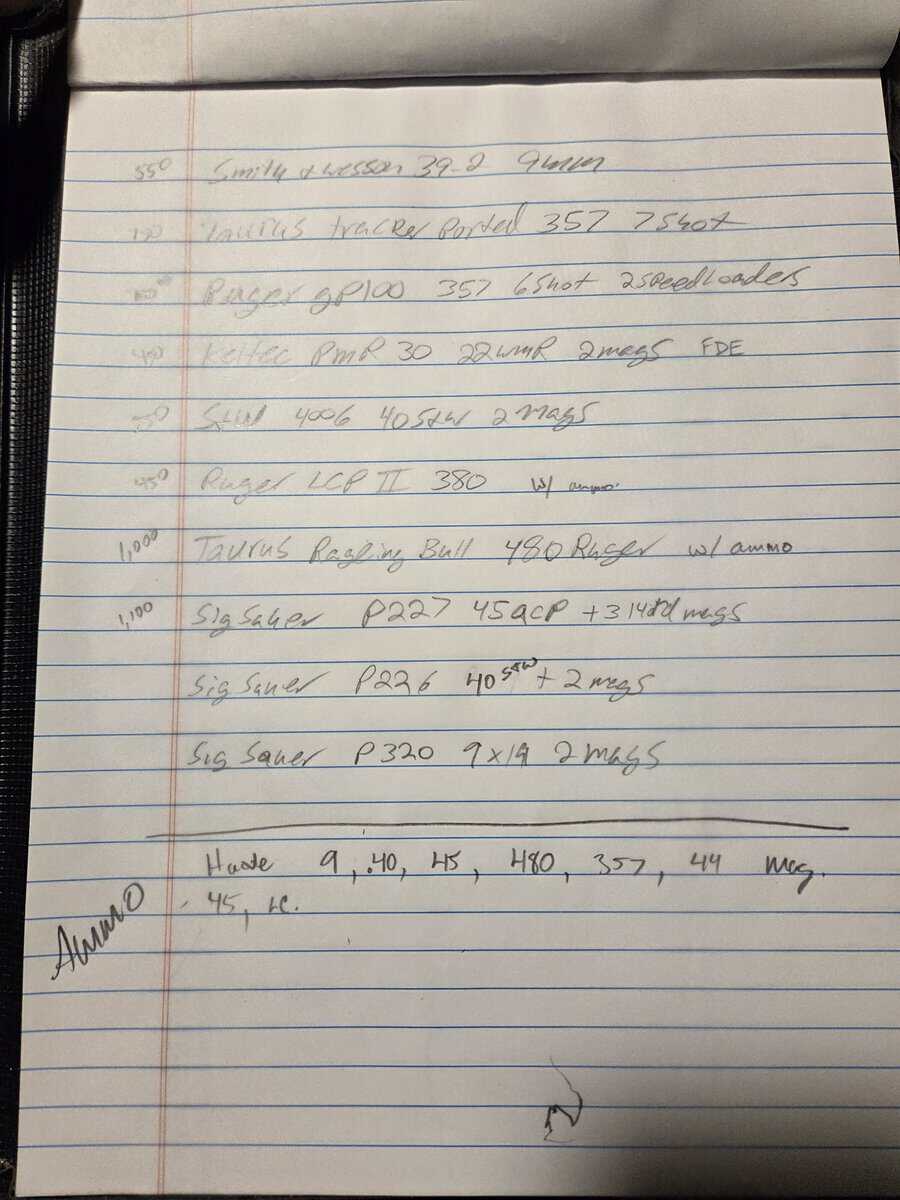 550 Smith & Wesson 39-2 9mm
Taurus tracker Ported 357 7Shot
Ruger gP100 357 6Shot 2SpeedLoaders
Keltec PmR 30 22wmR 2mags FDE
S&W 4006 40S&W 2 Mags
450 Ruger LCP II 380 w/ ammo
1,000 Taurus Ragling Bull 480 Ruger w/ ammo
1,100 Sig Sauer P227 45acp + 3 14rd mags
Sig Sauer P226 40 S&W + 2 mags
Sig Sauer P320 9x19 2 Mags
9, .40, 45, 480, 357, 44 mag.
45, LC.
Ammo